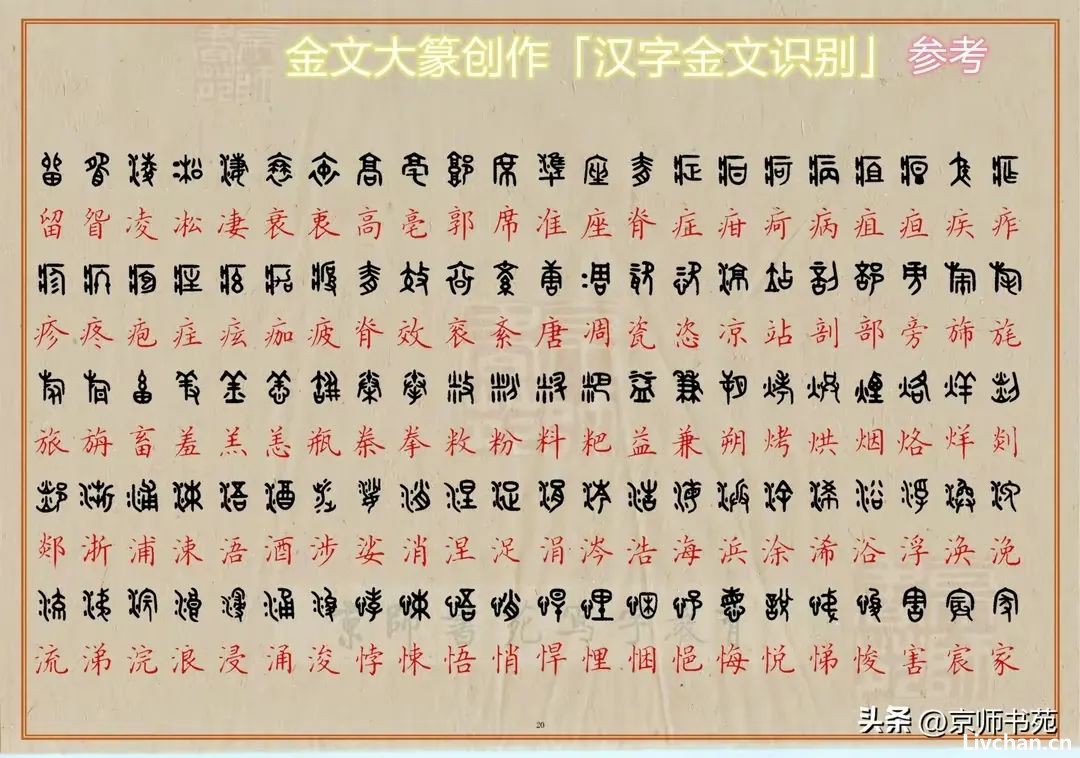 金文大篆创作「汉字金文识别」 参考
留眢凌凇凄衰衷高亳郭席准座脊症疳疴病疽疸疾痄
疹疼疱疰痃痂疲脊效衮紊唐凋瓷恣凉站剖部旁旆旄
旅旃畜羞羔恙瓶桊拳敉粉料粑益兼朔烤烘烟烙烊剡
郯浙浦涑浯酒涉娑消涅浞涓涔浩海浜涂浠浴浮涣浼
流涕浣浪浸涌浚悖悚悟悄悍悝悃悒悔悦悌悛害宸家
京師書苑写字教育
20
头条 @京师书苑
Livchan.cn